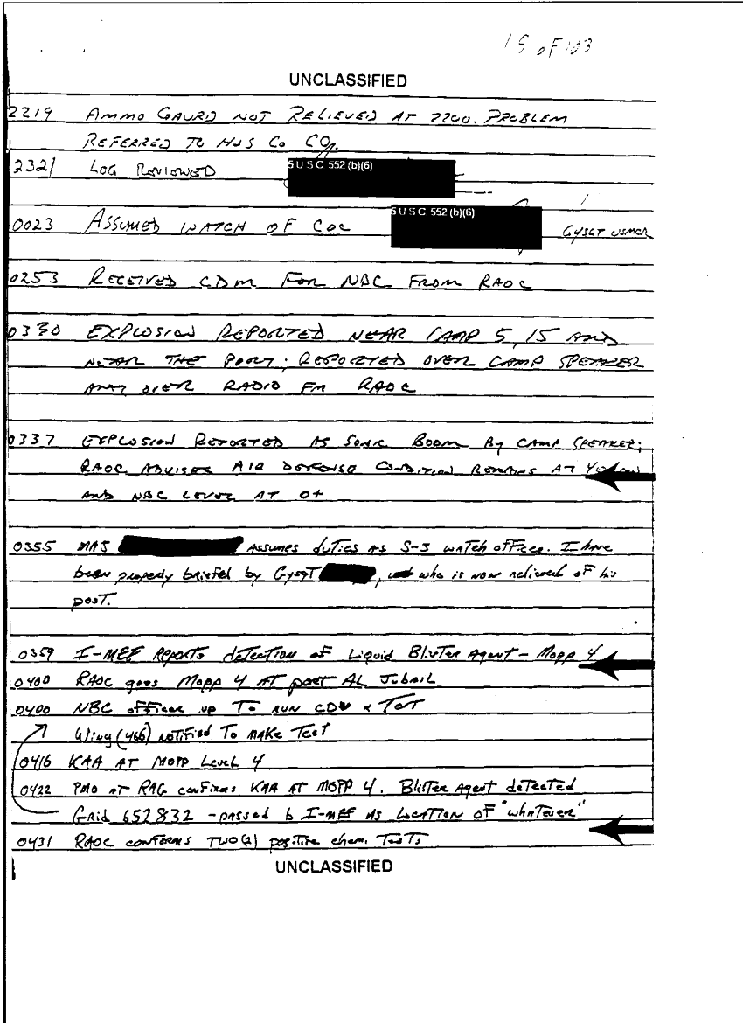 15 of 103
UNCLASSIFIED
2319 AMMO GAURD NOT RELIEVED AT 2200. PROBLEM
REFERRED TO H&S Co CO.
2321 LOG REVIEWED 5 U S C 552 (b)(6)
0023 ASSUMED WATCH OF COC 5 U S C 552 (b)(6) GYSGT USMCR
0253 RECEIVED CDM FOR NBC FROM RAOC
0330 EXPLOSION REPORTED NEAR CAMP 5, 15 AND
NEAR THE PORT; REPORTED OVER CAMP SPEAKER
AND OVER RADIO FM RAOC
0337 EXPLOSION REPORTED AS SONIC BOOM BY CAMP SPEAKER;
RAOC ADVISES AIR DEFENSE CONDITION REMAINS AT YELLOW
AND NBC LEVEL AT 04
0355 MAJ ASSUMES duties as S-3 watch officer. I have
been properly briefed by GySgT , who is now relieved of his
post.
0359 I-MEF Reports detection of Liquid Blister Agent - Mopp 4
0400 RAOC goes Mopp 4 AT port AL Jubail
0400 NBC officer up To run CDM & TOT
Wing (46b) notified To make Test
0416 KAA AT MOPP Level 4
0422 PMO AT RAG confirms KAA AT MOPP 4. Blister Agent detected
Grid 652832 - passed by I-MEF as Location of "whatever"
0431 RAOC confirms TWO(2) positive chem. Tests
UNCLASSIFIED